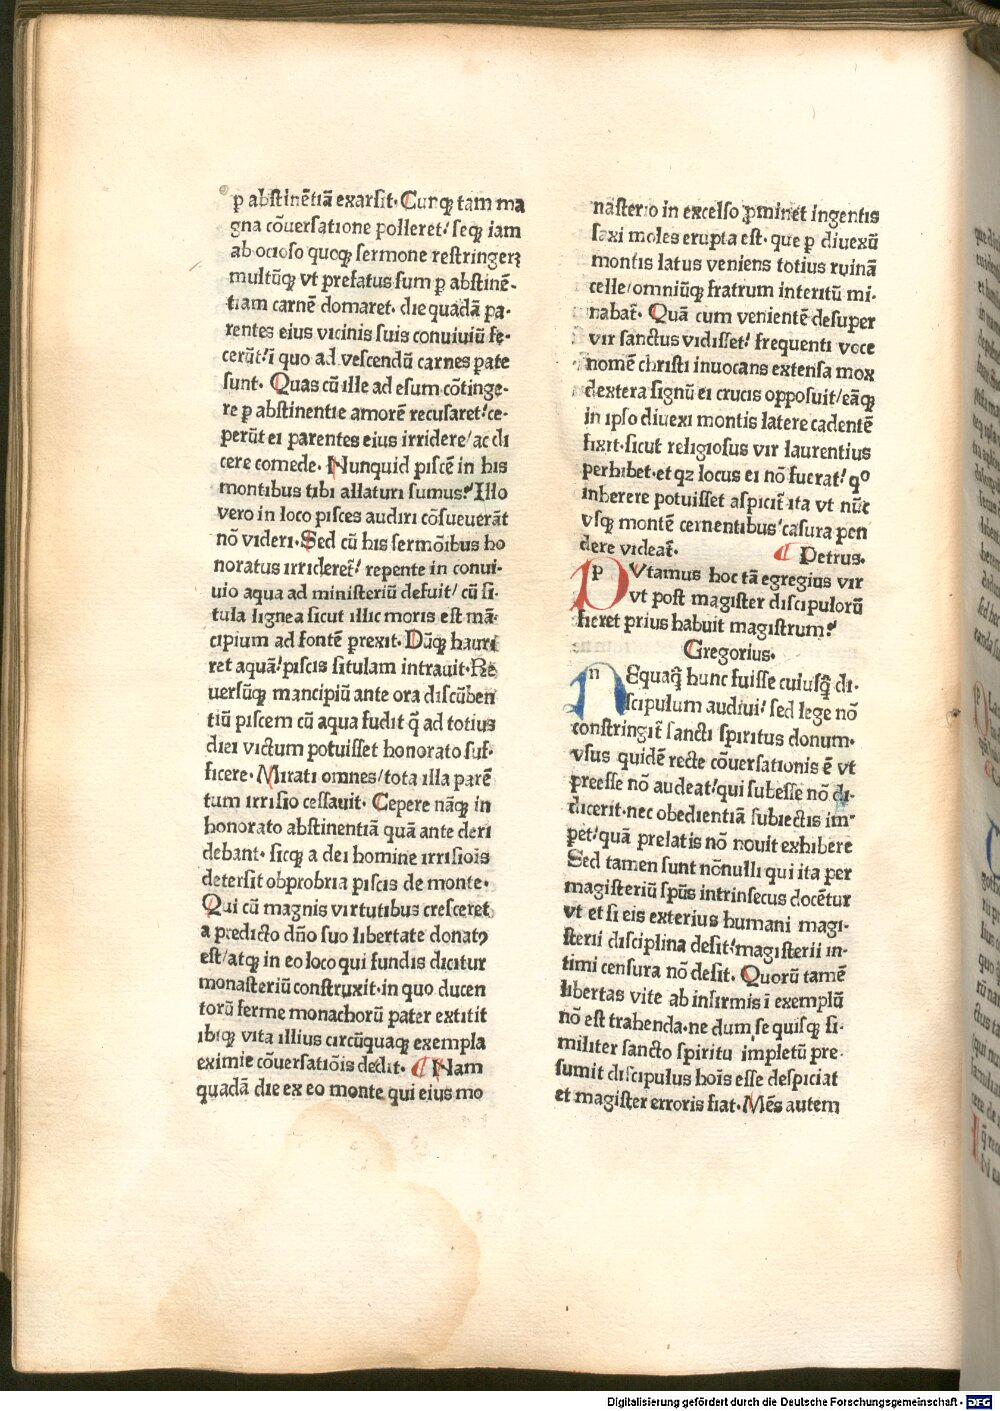 ꝑ abſtinētiā exarſit. Cunqꝫ tam ma
gna cōuerſatione polleret/ ſeqꝫ iam
ab ocioſo quoqꝫ ſermone reſtringerꝫ
multūqꝫ vt prefatus ſum ꝑ abſtinē-
tiam carnē domaret. die quadā pa-
rentes eius vicinis ſuis conuiuiū fe-
cerūt/ ī quo ad veſcendū carnes pate
ſunt. Quas cū ille ad eſum cōtinge-
re ꝑ abſtinentie amorē recuſaret/ ce-
perūt ei parentes eius irridere/ ac di
cere comede. Nunquid piſcē in his
montibus tibi allaturi ſumus? Illo
vero in loco piſces audiri cōſueuerāt
nō videri. Sed cū his ſermōibus ho
noratus irrideret̄/ repente in conui-
uio aqua ad miniſteriū defuit/ cū ſi-
tula lignea ſicut illic moris eſt mā-
cipium ad fontē prexit. Dūqꝫ hauri
ret aquā/ piſcis ſitulam intrauit. Re
uerſūqꝫ mancipiū ante ora diſcūben
tiū piſcem cū aqua fudit q̄ ad totius
diei victum potuiſſet honorato ſuf-
ficere. Mirati omnes/ tota illa parē
tum irriſio ceſſauit. Cepere nāqꝫ in
honorato abſtinentiā quā ante deri
debant. ſicqꝫ a dei homine irriſiōis
deterſit obprobria piſcis de monte.
Qui cū magnis virtutibus creſceret
a predicto dn̄o ſuo libertate donatꝰ
eſt/ atqꝫ in eo loco qui fundis dicitur
monaſteriū conſtruxit. in quo ducen
torū ferme monachorū pater extitit
ibiqꝫ vita illius circūquaqꝫ exempla
eximie cōuerſatiōis dedit. ¶ Nam
quadā die ex eo monte qui eius mo
naſterio in excelſo ꝓminet ingentis
ſaxi moles erupta eſt. que ꝑ diuexū
montis latus veniens totius ruinā
celle/ omniūqꝫ fratrum interitū mi-
nabat̄. Quā cum venientē deſuper
vir ſanctus vidiſſet/ frequenti voce
nomē chriſti inuocans extenſa mox
dextera ſignū ei crucis oppoſuit/ eāqꝫ
in ipſo diuexi montis latere cadentē
fixit. ſicut religioſus vir laurentius
perhibet. et qꝫ locus ei nō fuerat/ qͦ
inherere potuiſſet aſpicit̄ ita vt nūc
vſqꝫ montē cernentibus caſura pen
dere videat̄. ¶ Petrus.
PVtamus hoc tā egregius vir
vt poſt magiſter diſcipulorū
fieret prius habuit magiſtrum?
Gregorius.
nEquaq̄ hunc fuiſſe cuiuſq̄ di-
ſcipulum audiui/ ſed lege nō
conſtringit̄ ſancti ſpiritus donum.
vſus quidē recte cōuerſationis ē vt
preeſſe nō audeat/ qui ſubeſſe nō di-
dicerit. nec obedientiā ſubiectis im-
pet/ quā prelatis nō nouit exhibere
Sed tamen ſunt nōnulli qui ita per
magiſteriū ſpūs intrinſecus docētur
vt et ſi eis exterius humani magi-
ſterii diſciplina deſit/ magiſterii in-
timi cenſura nō deſit. Quorū tamē
libertas vite ab infirmis ī exemplū
nō eſt trahenda. ne dum ſe quiſqꝫ ſi-
militer ſancto ſpiritu impletū pre-
ſumit diſcipulus hoīs eſſe deſpiciat
et magiſter erroris fiat. Mēs autem
Digitalisierung gefördert durch die Deutsche Forschungsgemeinschaft - DFG